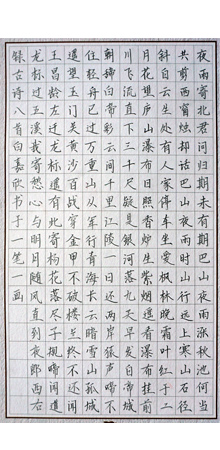 夜雨君问归期未有期巴山夜雨涨秋池何当
共剪西窗烛却话巴山夜雨时远上寒山石径
斜白云生处有人家停车坐爱枫林晚霜叶红于二
月花望庐山瀑布日照香炉生紫烟遥看瀑布挂前
川飞流直下三千尺疑是银河落九天早发白帝城
朝辞白帝彩云间千里江陵一日还两岸猿声啼不
住轻舟已过万重山从军行青海长云暗雪山孤城
遥望玉门关黄沙百战穿金甲不破楼兰终不还闻
王昌龄左迁龙标遥有此寄杨花落尽子规啼闻道
龙标过五溪我寄愁心与明月随风直到夜郎西右
録古诗八首白嘉欣书于一笔一画